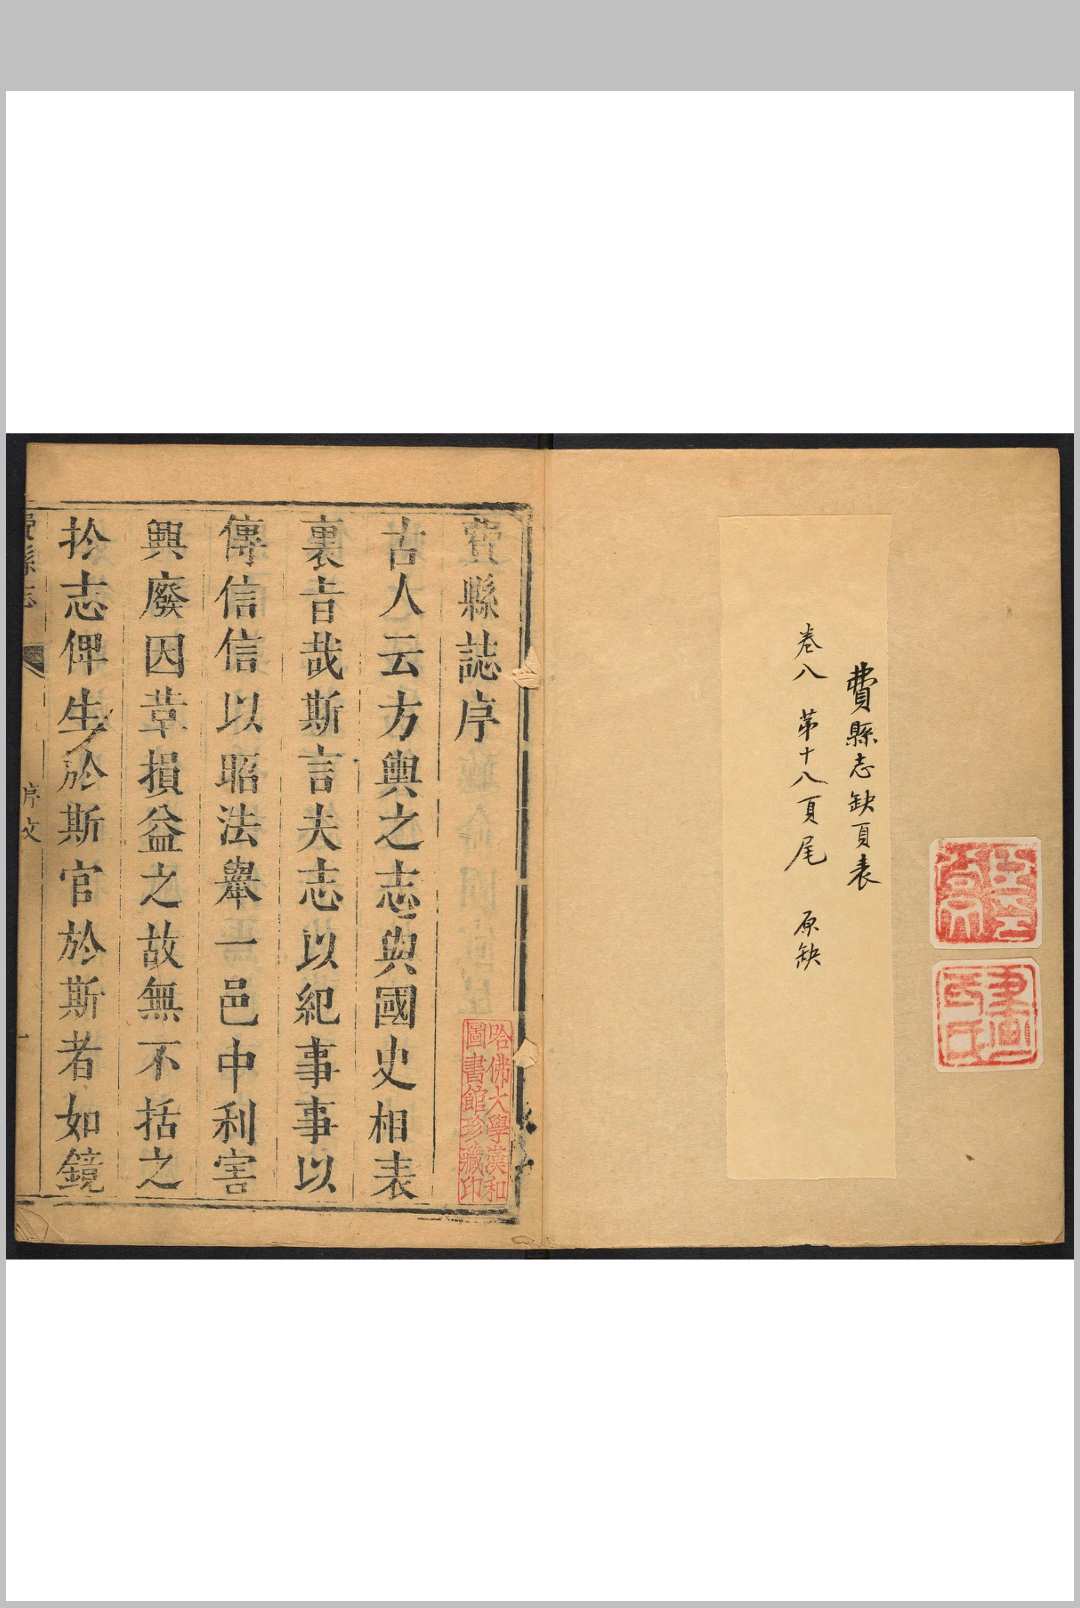 費縣志缺頁表
卷八 苐十八頁尾 原缺
費縣誌序
古人云方輿之志與國史相表
裏旨哉斯言夫志以紀事事以
傳信信以昭法舉一邑中利害
興廢因革損益之故無不括之
扵志俾生扵斯官於斯者如鏡
費縣志
序文
一
哈佛大學漢和
圖書館珍藏印